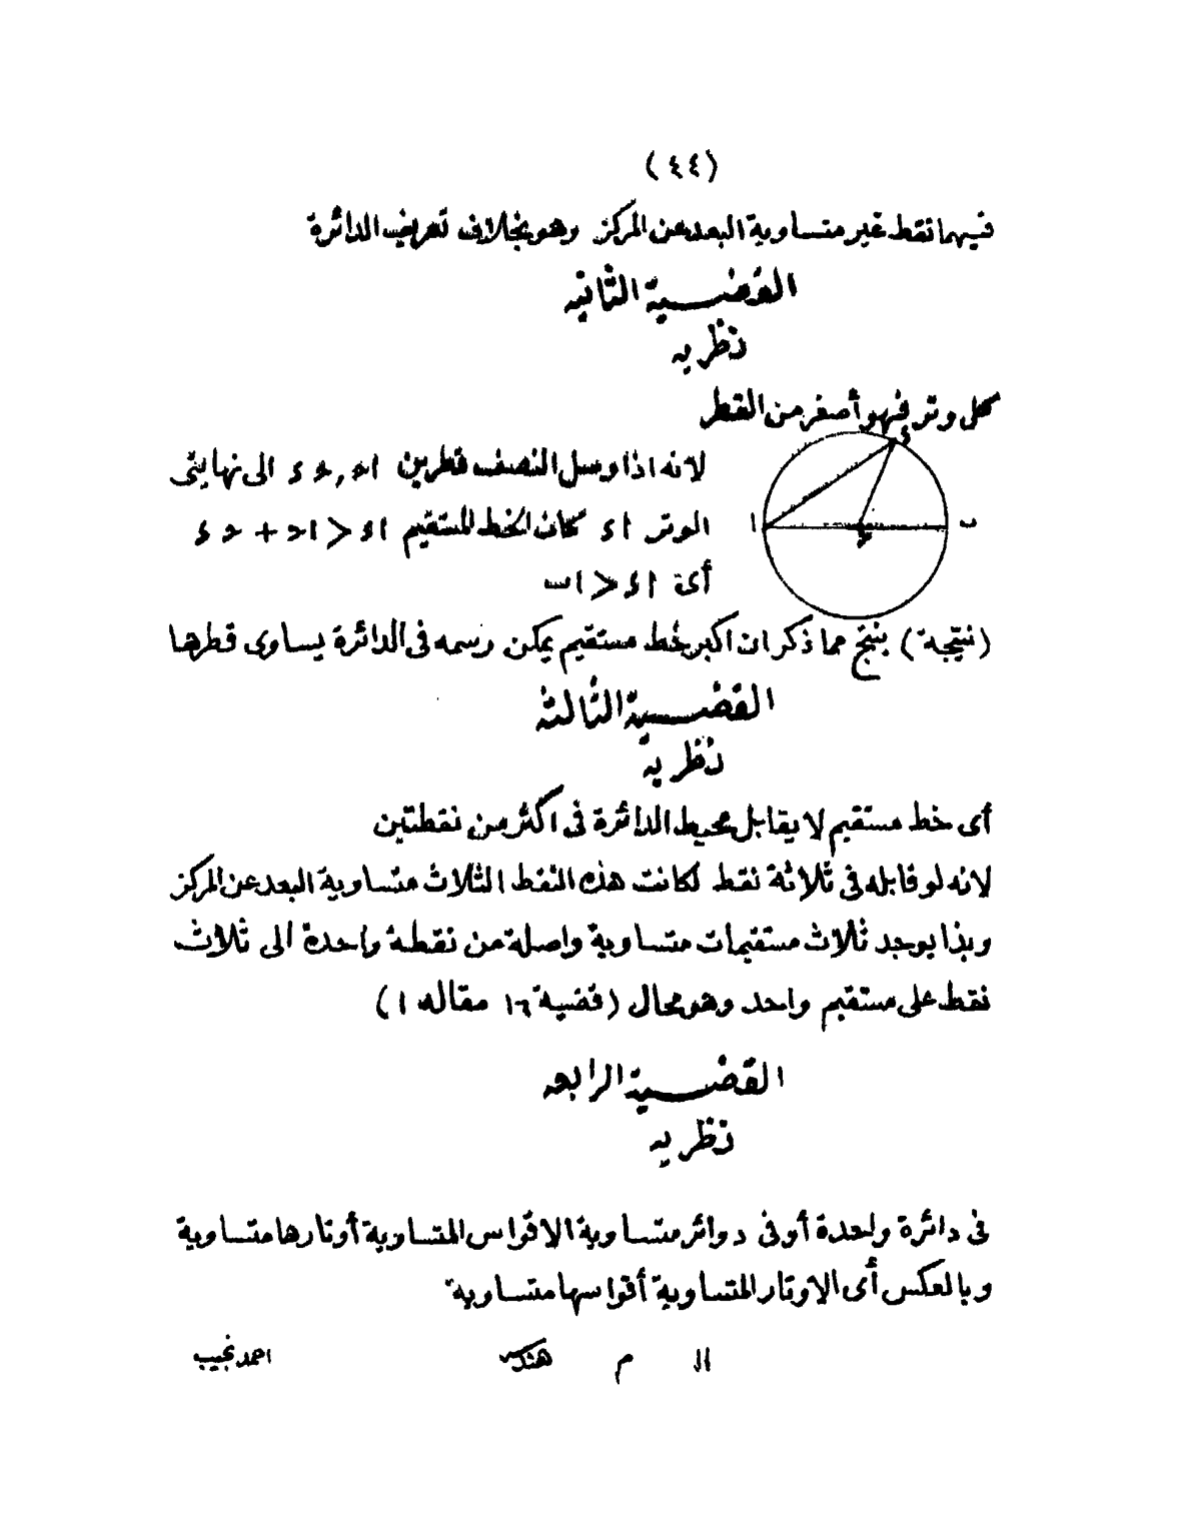 (٤٤)
فيهما نقط غير متساوية البعد عن المركز وهو بخلاف تعريف الدائرة
القضية الثانيه
نظريه
كل وتر فهو أصغر من القطر
لانه اذا وصل النصف قطرين ا حـ , حـ ء الى نهايتى
الوتر ا ء كان الخط المستقيم ا ء < ا حـ + حـ ء
أى ا ء < ا ب
ا
ب
ء
حـ
(نتيجة) ينتج مما ذكر ان اكبر خط مستقيم يمكن رسمه فى الدائرة يساوى قطرها
القضية الثالثة
نظرية
أى خط مستقيم لا يقابل محيط الدائرة فى اكثر من نقطتين
لانه لو قابله فى ثلاثة نقط لكانت هذه النقط الثلاث متساوية البعد عن المركز
وبذا يوجد ثلاث مستقيمات متساوية واصلة من نقطة واحدة الى ثلاث
نقط على مستقيم واحد وهو محال (قضية ١٦ مقاله ١)
القضية الرابعه
نظريه
فى دائرة واحدة أو فى دوائر متساوية الاقواس المتساوية أوتارها متساوية
وبالعكس أى الاوتار المتساوية أقواسها متساوية
١١ م هندسه احمد نجيب